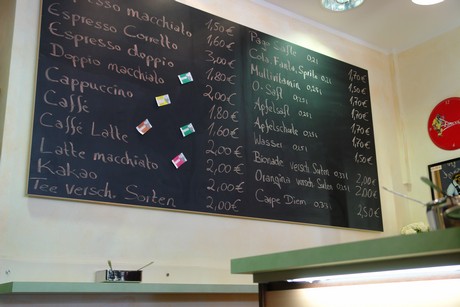 Espresso macchiato 1,50€
Espresso Corretto 1,60€
Espresso doppio 3,00€
Doppio macchiato 1,80€
Cappuccino 2,00€
Caffé 1,80€
Caffé Latte 1,60€
Latte macchiato 2,00€
Kakao 2,00€
Tee versch. Sorten 2,00€
Säfte 0,2l 1,70€
Cola, Fanta, Sprite 0,2l 1,50€
Multivitamin 0,2l 1,70€
O-Saft 0,2l 1,70€
Apfelsaft 0,2l 1,70€
Apfelschorle 0,25l 1,70€
Wasser 0,25l 1,50€
Bionade versch. Sorten 0,33l 2,00€
Orangina versch. Sorten 0,25l 2,00€
Carpe Diem 0,33l 2,50€